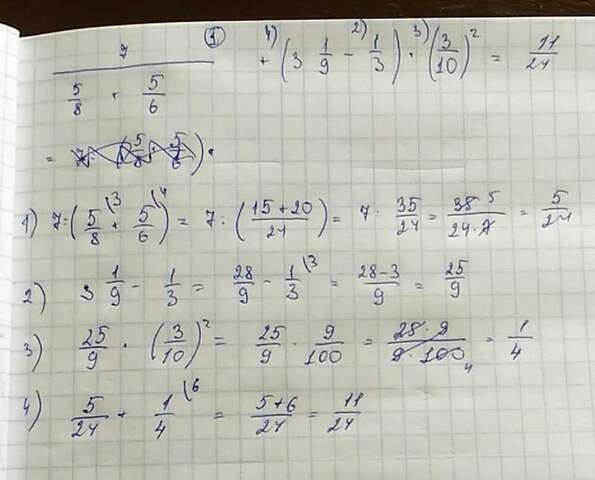 7 / (5/8 + 5/6) ① 4) + (3 1/9 2) - 1/3) 3) · (3/10)² = 11/24
= 7 : (5/8 · 5/6) ·
1) 7 : (5/8 \3 + 5/6 \4) = 7 : ((15+20)/24) = 7 · 35/24 = 35 5/(24·7) = 5/24
2) 3 1/9 - 1/3 = 28/9 - 1/3 \3 = (28-3)/9 = 25/9
3) 25/9 · (3/10)² = 25/9 · 9/100 = (25·9)/(9·100 4) = 1/4
4) 5/24 + 1/4 \6 = (5+6)/24 = 11/24